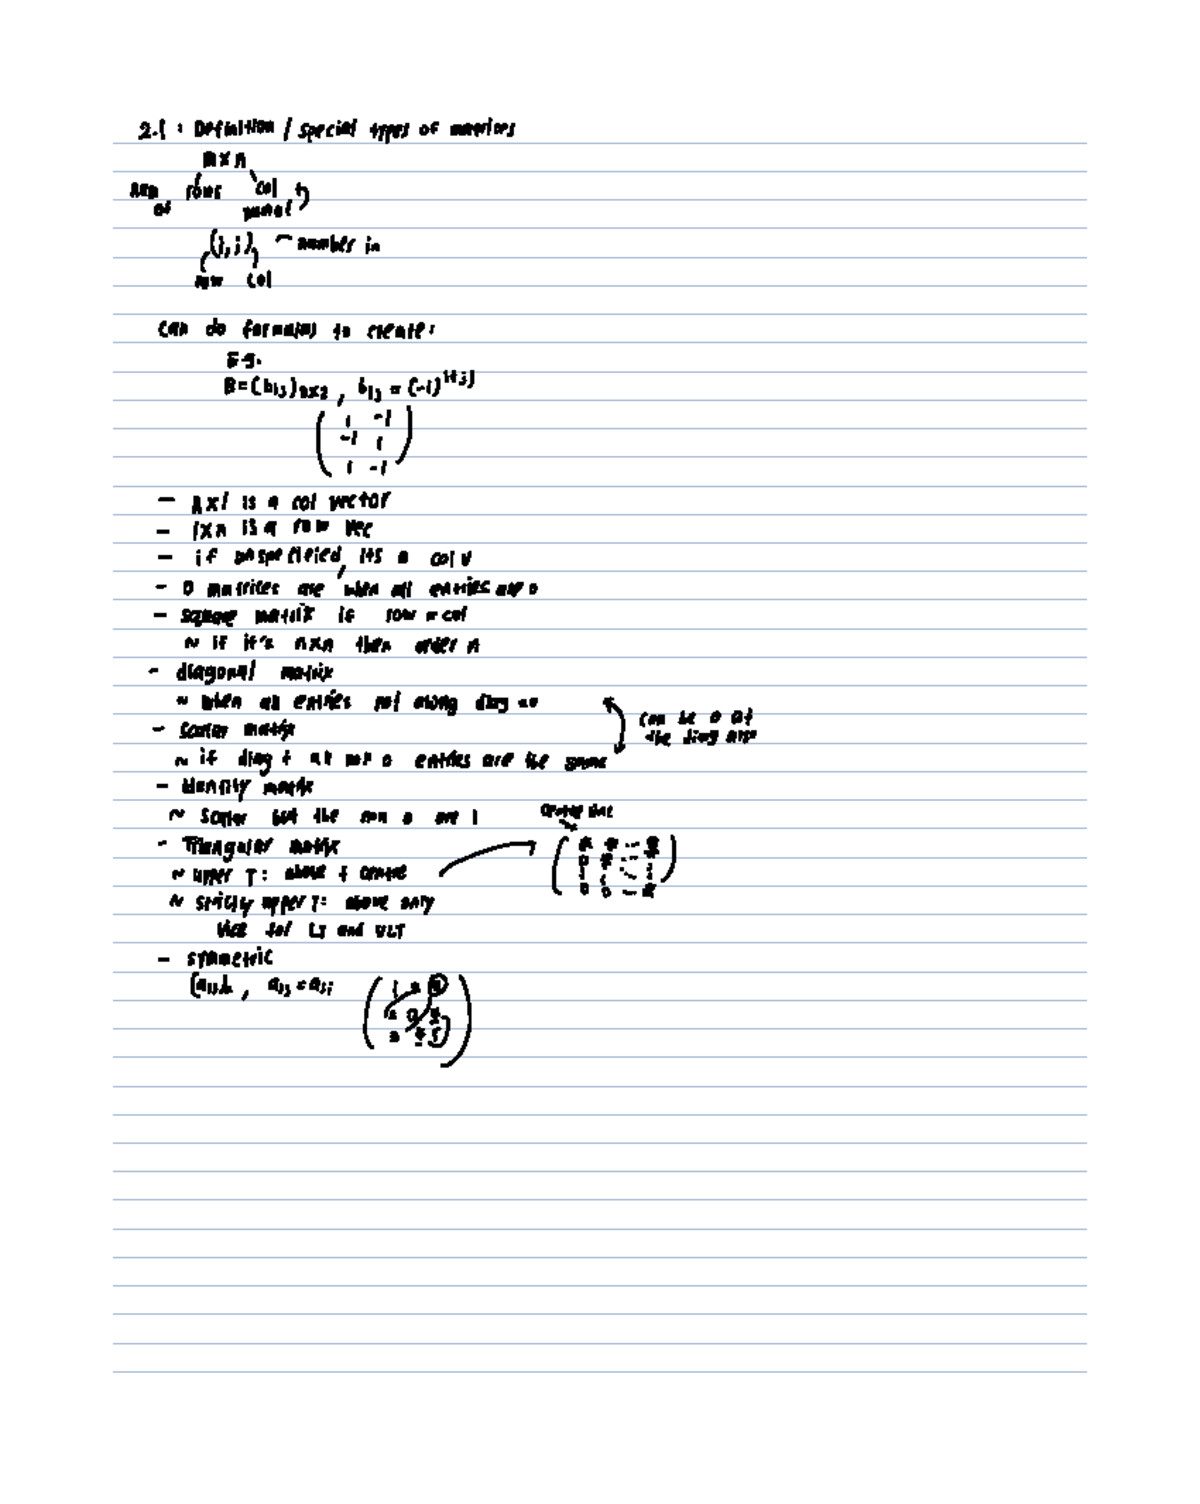 2.1 : Definition / special types of matrices
m x n
num of rows col
(i,j) number in
row col
can do formulas to create:
E.g.
B=(bij)3x2 , bij = (-1)^i+j
1 -1
-1 1
1 -1
- n x 1 is a col vector
- 1xn is a row vec
- if unspecified, its a col v
- 0 matrices are when all entries are 0
- square matrix if row = col
~ if it's nxn then order n
- diagonal matrix
~ when all entries not along diag = 0
can be 0 at the diag also
- scalar matrix
~ if diag + all non 0 entries are the same
- Identity matrix
~ scalar but the non 0 are 1
- Triangular matrix
~ upper T: above + centre
~ strictly upper T: above only
vice for LT and
- symmetric
, aij = aji